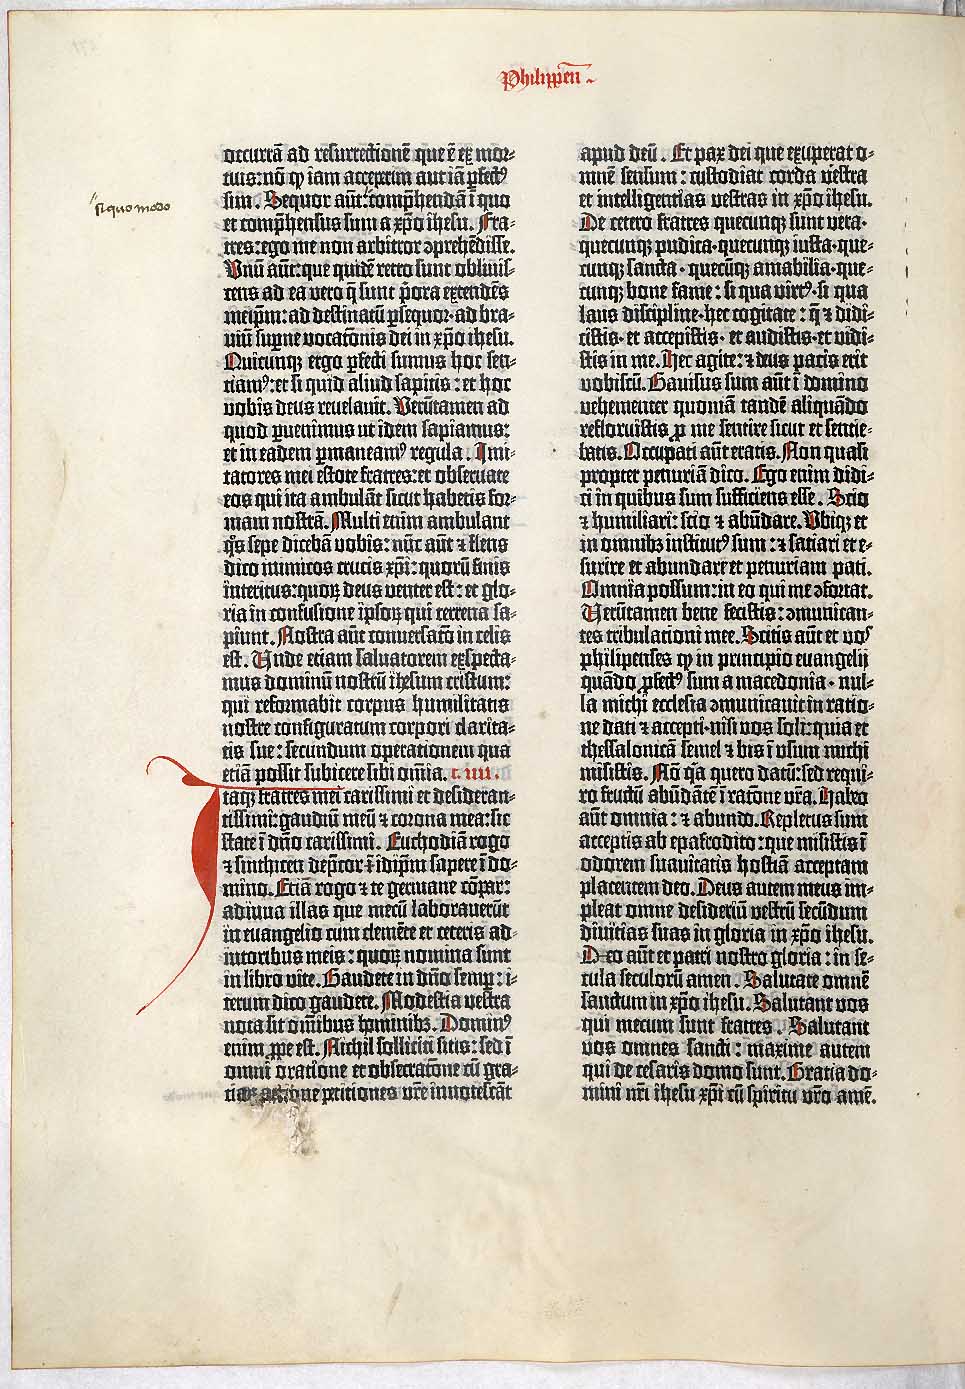 Philippen̄
occurrā ad resurrectionē que ē ex mor-
tuis: nō qꝫ iam acceperim aut iā ꝑfectꝰ
sim. Sequor aūt: cōprehendā ī quo
siquomodo
et comp̄hensus sum a xp̄o ihesu. Fra-
tres: ego me non arbitror ꝯprehēdisse.
Vnū aūt: que quidē retro sunt oblivis-
cens ad ea vero q̄ sunt p̄ora extendēs
meip̄m: ad destinatū ꝑsequor· ad bra-
viū sup̄ne vocatōnis dei in xp̄o ihesu.
Quicunqꝫ ergo ꝑfecti sumus hoc sen-
tiamꝰ: et si quid aliud sapitis: et hoc
vobis deus revelavit. Verūtamen ad
quod ꝑvenimus ut idem sapiamus:
et in eadem ꝑmaneamꝰ regula. Imi-
tatores mei estote fratres: et observate
eos qui ita ambulāt sicut habetis for-
mam nostrā. Multi enim ambulant
qͦs sepe dicebā vobis: nūc aūt ⁊ flens
dico inimicos crucis xp̄i: quorū finis
interitus: quoꝝ deus venter est: et glo-
ria in confusione ipsoꝝ qui terrena sa-
piunt. Nostra aūt conversatō in celis
est. Unde etiam salvatorem exspecta-
mus dominū nostrū ihesum cristum:
qui reformabit corpus humilitatis
nostre configuratum corpori clarita-
tis sue: secundum operationem qua
etiā possit subicere sibi om̄ia. c. iiii.
Itaqꝫ fratres mei carissimi et desideran-
tissimi: gaudiū meū ⁊ corona mea: sic
state ī dn̄o carissimi. Euchodiā rogo
⁊ sinthicen dep̄cor ⁊ idip̄m sapere ī do-
mino. Etiā rogo ⁊ te germane cōpar:
adiuva illas que mecū laboraverūt
in euangelio cum clemēte et ceteris ad-
iutoribus meis: quoꝝ nomina sunt
in libro vite. Gaudete in dn̄o semꝑ: i-
terum dico gaudete. Modestia vestra
nota sit om̄ibus hominibꝫ. Dominꝰ
enim ꝓpe est. Nichil solliciti sitis: sed ī
omni oratione et obsecratōne cū gra-
tiaꝝ actione petitiones vr̄e innotescāt
apud deū. Et pax dei que exuperat o-
mnē sensum: custodiat corda vestra
et intelligentias vestras in xp̄o ihesu.
De cetero fratres quecunqꝫ sunt vera·
quecunqꝫ pudica· quecunqꝫ iusta· que-
cunqꝫ sancta· quecūqꝫ amabilia· que-
cunqꝫ bone fame: si qua virtꝰ· si qua
laus discipline· hec cogitate: q̄ ⁊ didi-
cistis· et accepistis· et audistis· et vidi-
stis in me. Hec agite: ⁊ deus pacis erit
vobiscū. Gavisus sum aūt ī domino
vehementer quoniā tandē aliquādo
refloruistis ꝓ me sentire sicut et sentie-
batis. Occupati aūt eratis. Non quasi
propter penuriā dico. Ego enim didi-
ci in quibus sum sufficiens esse. Scio
⁊ humiliari: scio ⁊ abūdare. Ubiqꝫ et
in omnibꝫ institutꝰ sum: ⁊ satiari et e-
surire et abundare et penuriam pati.
Omnia possum: in eo qui me ꝯfortat.
Verūtamen bene fecistis: ꝯmunican-
tes tribulationi mee. Scitis aūt et vos
philipenses qꝫ in principio euangelij
quādo ꝓfectꝰ sum a macedonia· nul-
la michi ecclesia ꝯmunicavit in ratio-
ne dati ⁊ accepti· nisi vos soli: quia et
thessalonicā semel ⁊ bis ī usum michi
misistis. Nō qͣa quero datū: sed requi-
ro fructū abūdātē ī ratōne vr̄a. Habeo
aūt omnia: ⁊ abundo. Repletus sum
acceptis ab epafrodito: que misistis ī
odorem suavitatis hostiā acceptam
placentem deo. Deus autem meus im-
pleat omne desideriū vestrū secūdum
divitias suas in gloria in xp̄o ihesu.
Deo aūt et patri nostro gloria: in se-
cula seculorū amen. Salutate omnē
sanctum in xp̄o ihesu. Salutant vos
qui mecum sunt fratres. Salutant
vos omnes sancti: maxime autem
qui de cesaris domo sunt. Gratia do-
mini nr̄i ihesu xp̄i cū spiritu vr̄o amē.